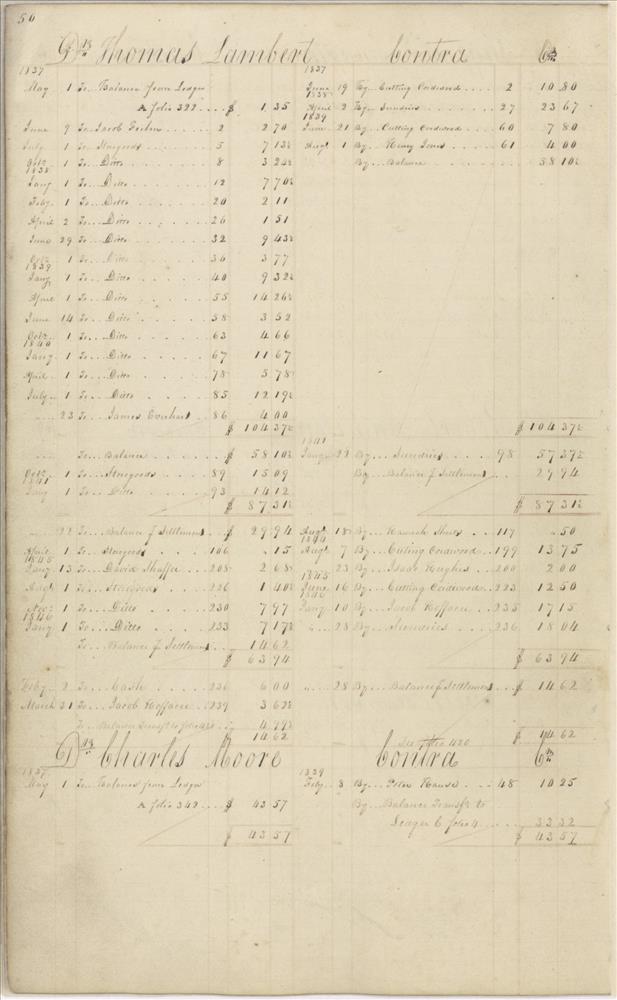 50
Drs Thomas Lambert Contra Crs
1837
May 1 To Balance from Ledger
A folio 322 $ 1 35
June 9 To Jacob 2 2 70
July 1 To Storegoods 5 7 13½
Octr 1 To Ditto 8 3 24½
1838
Jany 1 To Ditto 12 7 70½
Feby 1 To Ditto 20 2 11
April 2 To Ditto 26 1 51
June 29 To Ditto 32 9 43½
Octr 1 To Ditto 36 3 77
1839
Jany 1 To Ditto 40 9 32½
April 1 To Ditto 55 14 26½
June 14 To Ditto 58 3 52
Octr 1 To Ditto 63 4 66
1840
Jany 1 To Ditto 67 11 67
April 1 To Ditto 78 5 78½
July 1 To Ditto 85 12 19½
23 To James Everhart 86 4 00
$ 104 37½
To Balance $ 58 10½
Octr 1 To Storegoods 89 15 09
1841
Jany 1 To Ditto 93 14 12
$ 87 31½
22 To Balance p Settlement $ 29 94
April 1 To Storegoods 106 " 15
1845
Jany 13 To David Shaffer 208 2 68½
Augt 1 To Storegoods 226 1 40½
Novr 1 To Ditto 230 7 97
1846
Jany 1 To Ditto 233 7 17½
To Balance p Settlement 14 62
$ 63 94
Feby 2 To Cash 236 6 00
March 31 To Jacob Hoffacre 239 3 62½
To Balance Transfd to folio 420 4 99½
14 62
1837
June 19 By Cutting Cordwood 2 10 80
1838
April 2 By Sundries 27 23 67
1839
June 21 By Cutting Cordwood 60 7 80
Augt 1 By Henry Jones 61 4 00
By Balance 58 10½
$ 104 37½
1841
Jany 22 By Sundries 98 57 37½
By Balance p Settlement 29 94
$ 87 31½
Augt 18 By 117 " 50
1844
Augt 7 By Cutting Cordwood 199 13 75
23 By Isaac Hughes 200 2 00
1845
June 16 By Cutting Cordwood 223 12 50
1846
Jany 10 By Jacob Hoffacre 235 17 15
" 28 By Sundries 236 18 04
$ 63 94
" 28 By Balance p Settlement $ 14 62
See folio 420 $ 14 62
Drs Charles Moore Contra Crs
1837
May 1 To Balance from Ledger
A folio 342 $ 43 57
$ 43 57
1839
Feby 3 By Peter Hause 48 10 25
By Balance Transfr to
Ledger C folio 4 33 32
$ 43 57